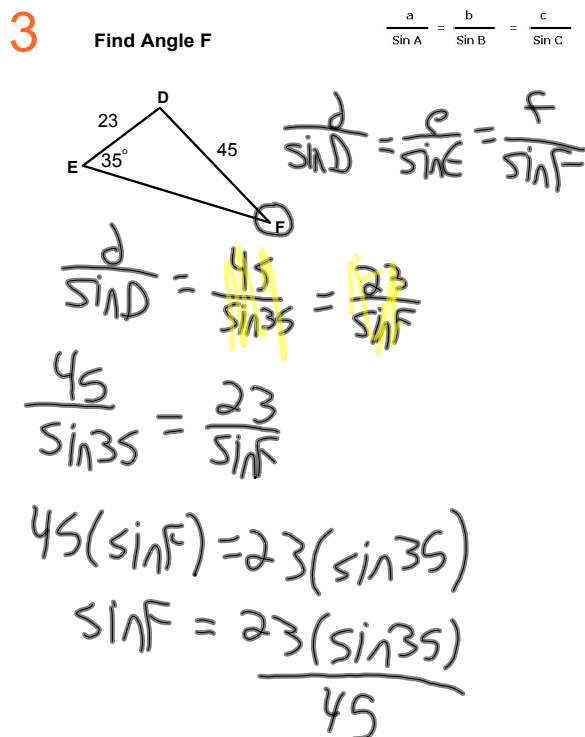 3
Find Angle F
a/Sin A = b/Sin B = c/Sin C
D
23
45
E
35°
F
d/sinD = e/sinE = f/sinF
d/sinD = 45/sin35 = 23/sinF
45/sin35 = 23/sinF
45(sinF) = 23(sin35)
sinF = 23(sin35)/45